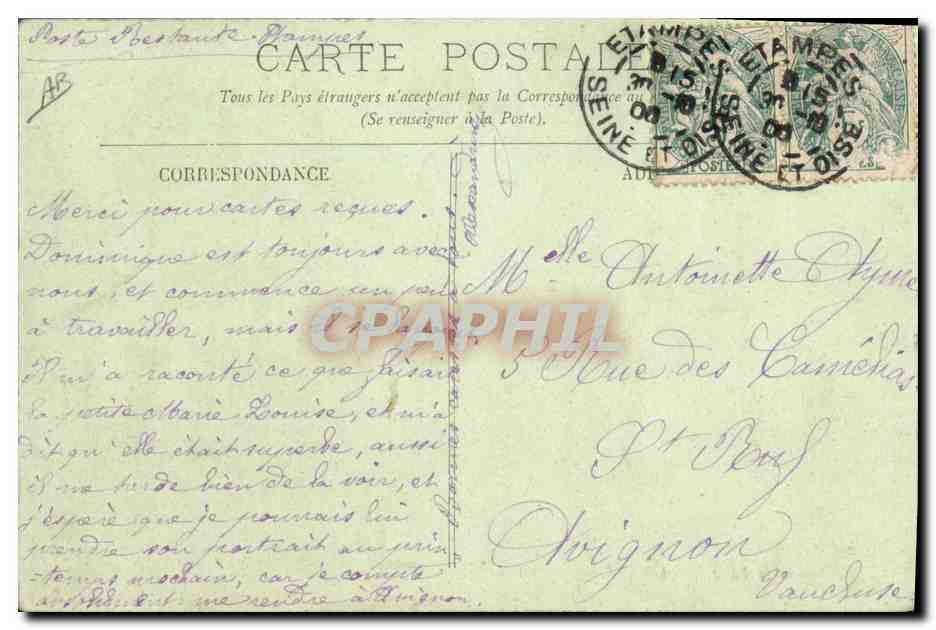 Poste Restante Etampes
AB
CARTE POSTALE
Tous les Pays étrangers n'acceptent pas la Correspondance au
(Se renseigner à la Poste).
CORRESPONDANCE
Merci pour cartes reçues.
Dominique est toujours avec
nous, et commence un peu
à travailler, mais il se
Il m'a raconté ce que faisait
la petite Marie Louise, et m'a
dit qu'elle était superbe, aussi
il me tarde bien de la voir, et
j'espère que je pourrais lui
prendre son portrait au prin
-temps prochain, car je compte
absolument me rendre à Avignon.
Bonnes à tous.
Alexandrine
AD
Mlle Antoinette Ayme
5 Rue des Camélias
St Ruf
Avignon
Vaucluse
ETAMPES
SEINE ET OISE
ETAMPES
SEINE ET OISE
POSTES
CPAPHIL